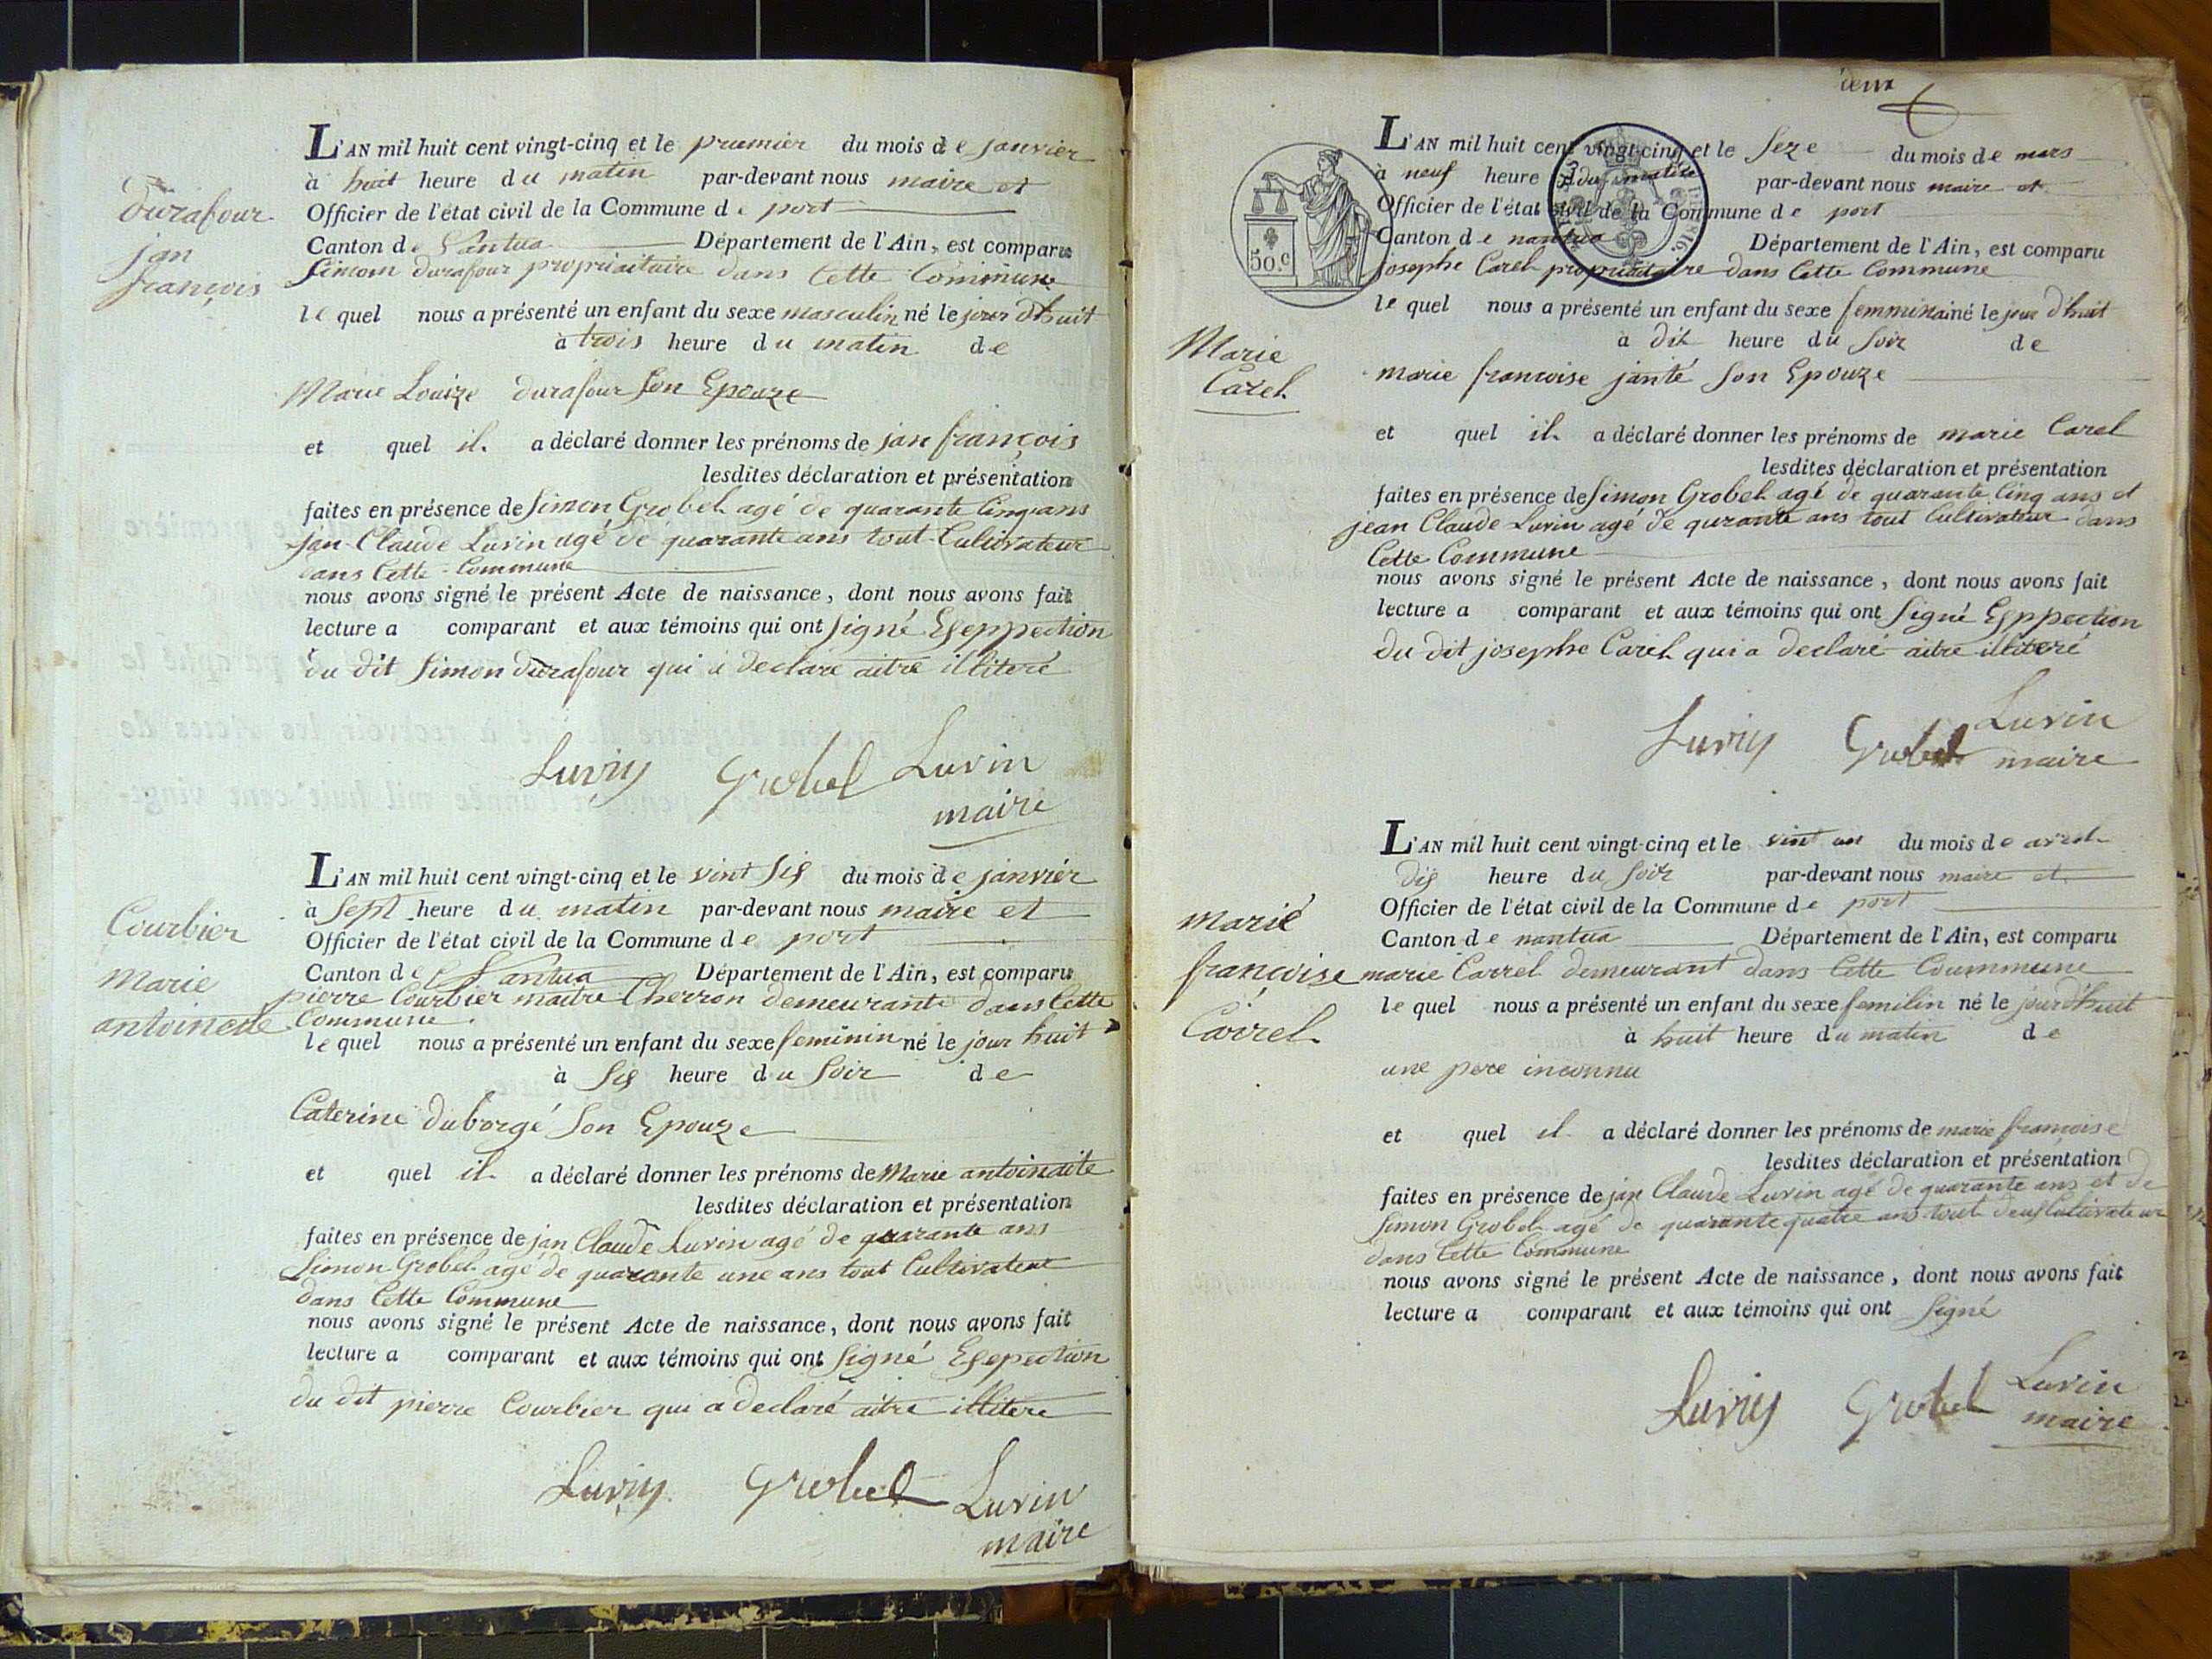 L'AN mil huit cent vingt-cinq et le premier du mois de janvier
à huit heure du matin par-devant nous maire et
Officier de l'état civil de la Commune de port
Canton de Nantua Département de l'Ain, est comparu
Simom durafour propriaitaire dans Cette Commune
le quel nous a présenté un enfant du sexe masculin né le jour dhuit
à trois heure du matin de
Marie Louize durafour Son Epouze
et quel il a déclaré donner les prénoms de jan françois
lesdites déclaration et présentation
faites en présence de Simon Grobel agé de quarante Cinq ans
jan Claude Luvin agé de quarante ans tout Cultivateur
dans Cette Commune
nous avons signé le présent Acte de naissance, dont nous avons fait
lecture a comparant et aux témoins qui ont Signé Eseppection
du dit Simon durafour qui a declaré aitre illiteré
Luvin Grobel Luvin
maire
durafour
jan
françois
L'AN mil huit cent vingt-cinq et le vint Sis du mois de janvier
à Sept heure du matin par-devant nous maire et
Officier de l'état civil de la Commune de port
Canton de Nantua Département de l'Ain, est comparu
pierre Courbier maitre Cherron demeurante dans Cette
Commune
le quel nous a présenté un enfant du sexe feminin né le jour huit
à Sis heure du Soir de
Caterine duborgé Son Epouze
et quel il a déclaré donner les prénoms de Marie antoinaite
lesdites déclaration et présentation
faites en présence de jan Claude Luvin agé de quarante ans
Simon Grobel agé de quarante une ans tout Cultivateur
dans Cette Commune
nous avons signé le présent Acte de naissance, dont nous avons fait
lecture a comparant et aux témoins qui ont Signé Esepection
du dit pierre Courbier qui a declaré aitre illitere
Luvin Grobel Luvin
maire
Courbier
Marie
antoinette
deux
L'AN mil huit cent vingt-cinq et le Seze du mois de mars
à neuf heure du matin par-devant nous maire et
Officier de l'état civil de la Commune de port
Canton de nantua Département de l'Ain, est comparu
50.c
josephe Carel propriaitaire dans Cette Commune
le quel nous a présenté un enfant du sexe femminain né le jour d'huit
à dix heure du Soir de
marie francoise janté Son Epouze
et quel il a déclaré donner les prénoms de marie Carel
lesdites déclaration et présentation
faites en présence de Simon Grobel agé de quarante Cinq ans et
jean Claude Luvin agé de qurante ans tout Cultivateur dans
Cette Commune
nous avons signé le présent Acte de naissance, dont nous avons fait
lecture a comparant et aux témoins qui ont Signé Esppection
du dit josephe Carel qui a declaré aitre illiteré
Luvin Grobel Luvin
maire
Marie
Carel
L'AN mil huit cent vingt-cinq et le vint un du mois de avril
dis heure du Soir par-devant nous maire et
Officier de l'état civil de la Commune de port
Canton de nantua Département de l'Ain, est comparu
marie Carrel demeurant dans Cette Coummune
le quel nous a présenté un enfant du sexe femilin né le jour d'huit
à huit heure du matin de
une pere inconnu
et quel il a déclaré donner les prénoms de marie francoise
lesdites déclaration et présentation
faites en présence de jan Claude Luvin agé de quarante ans et de
Simon Grobel agé de quarante quatre ans tout deus Cultivateur
dans Cette Commune
nous avons signé le présent Acte de naissance, dont nous avons fait
lecture a comparant et aux témoins qui ont Signé
Luvin Grobel Luvin
maire
marie
françoise
Carrel